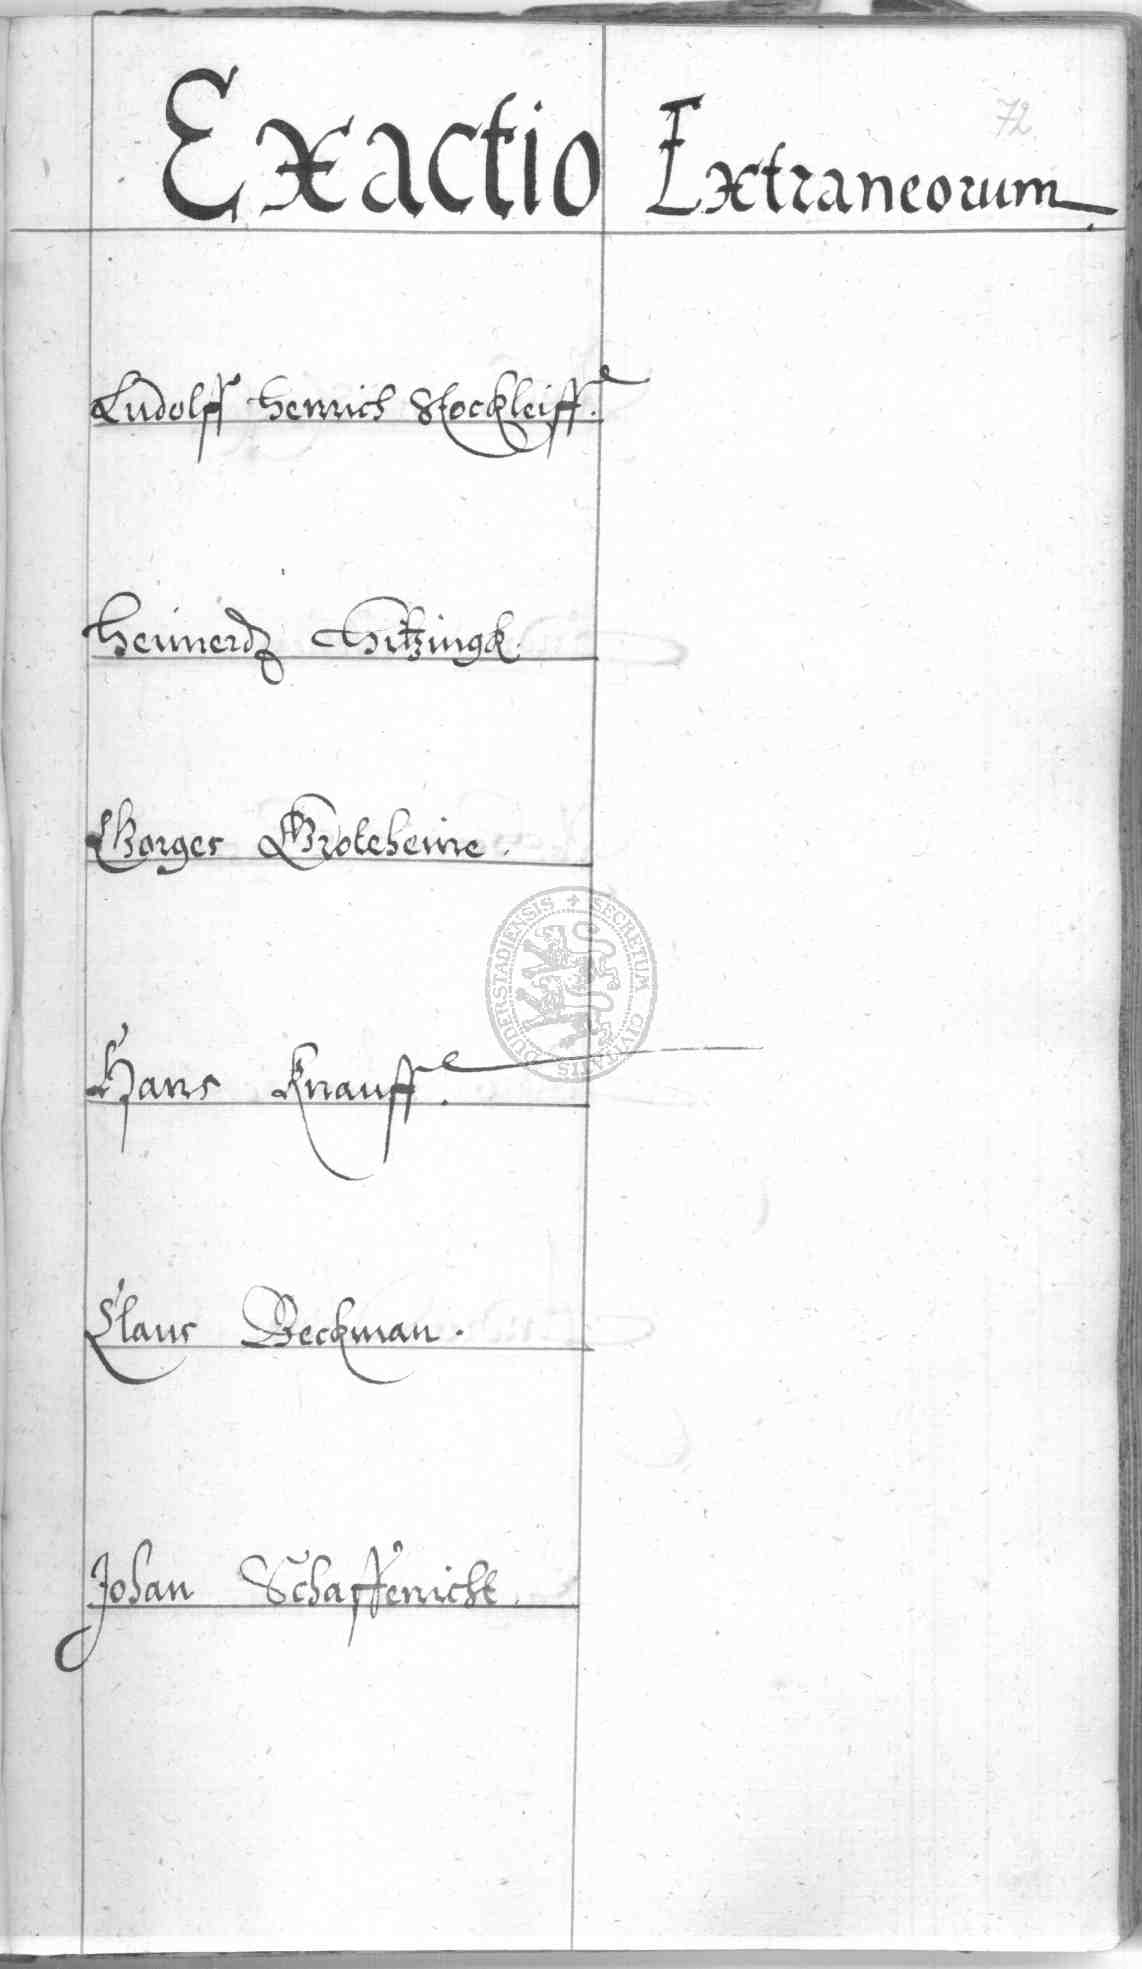 72
Exactio Extraneorum
Ludolff Henrich Stockleiff.
Hennerdz Hitzingk.
Gorges Groteheine.
Hans Knauff.
Claus Beckman.
Johan Schaffenicht.
SECRETUM CIVITATIS DUDERSTADIENSIS